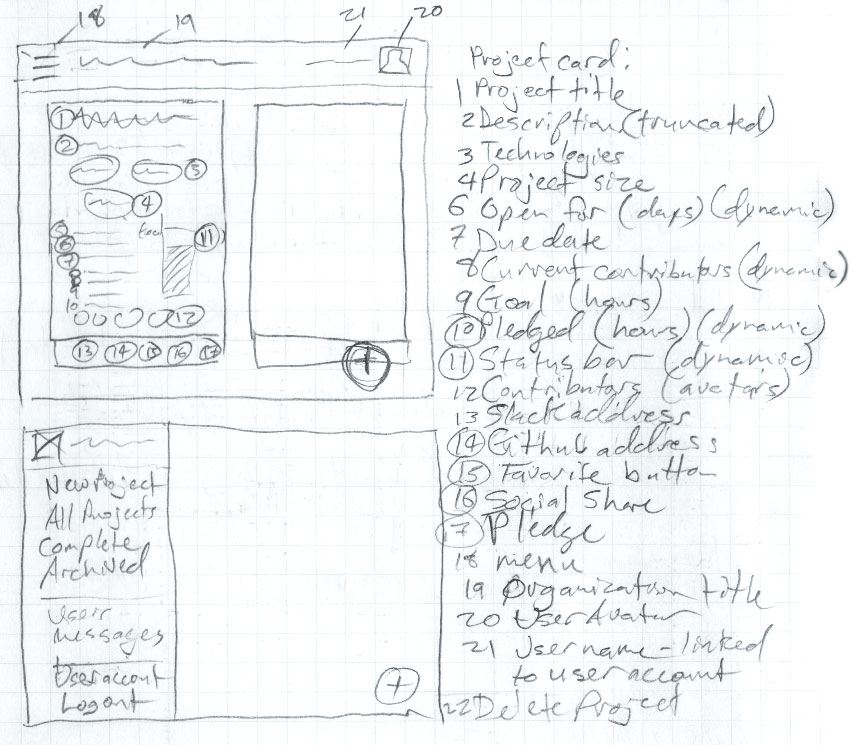 18
19
21
20
1
2
3
4
5
6
7
8
9
10
11
12
13 14 15 16 17
+
Project card:
1 Project title
2 Description (truncated)
3 Technologies
4 Project size
6 Open for (days) (dynamic)
7 Due date
8 Current contributors (dynamic)
9 Goal (hours)
10 Pledged (hours) (dynamic)
11 Status bar (dynamic)
12 Contributors (avatars)
13 Slack address
14 Github address
15 Favorite button
16 Social Share
17 Pledge
18 menu
19 Organization title
20 User Avatar
21 Username - linked
to user account
22 Delete Project
New Project
All Projects
Complete
Archived
Users
messages
User account
Logout
+